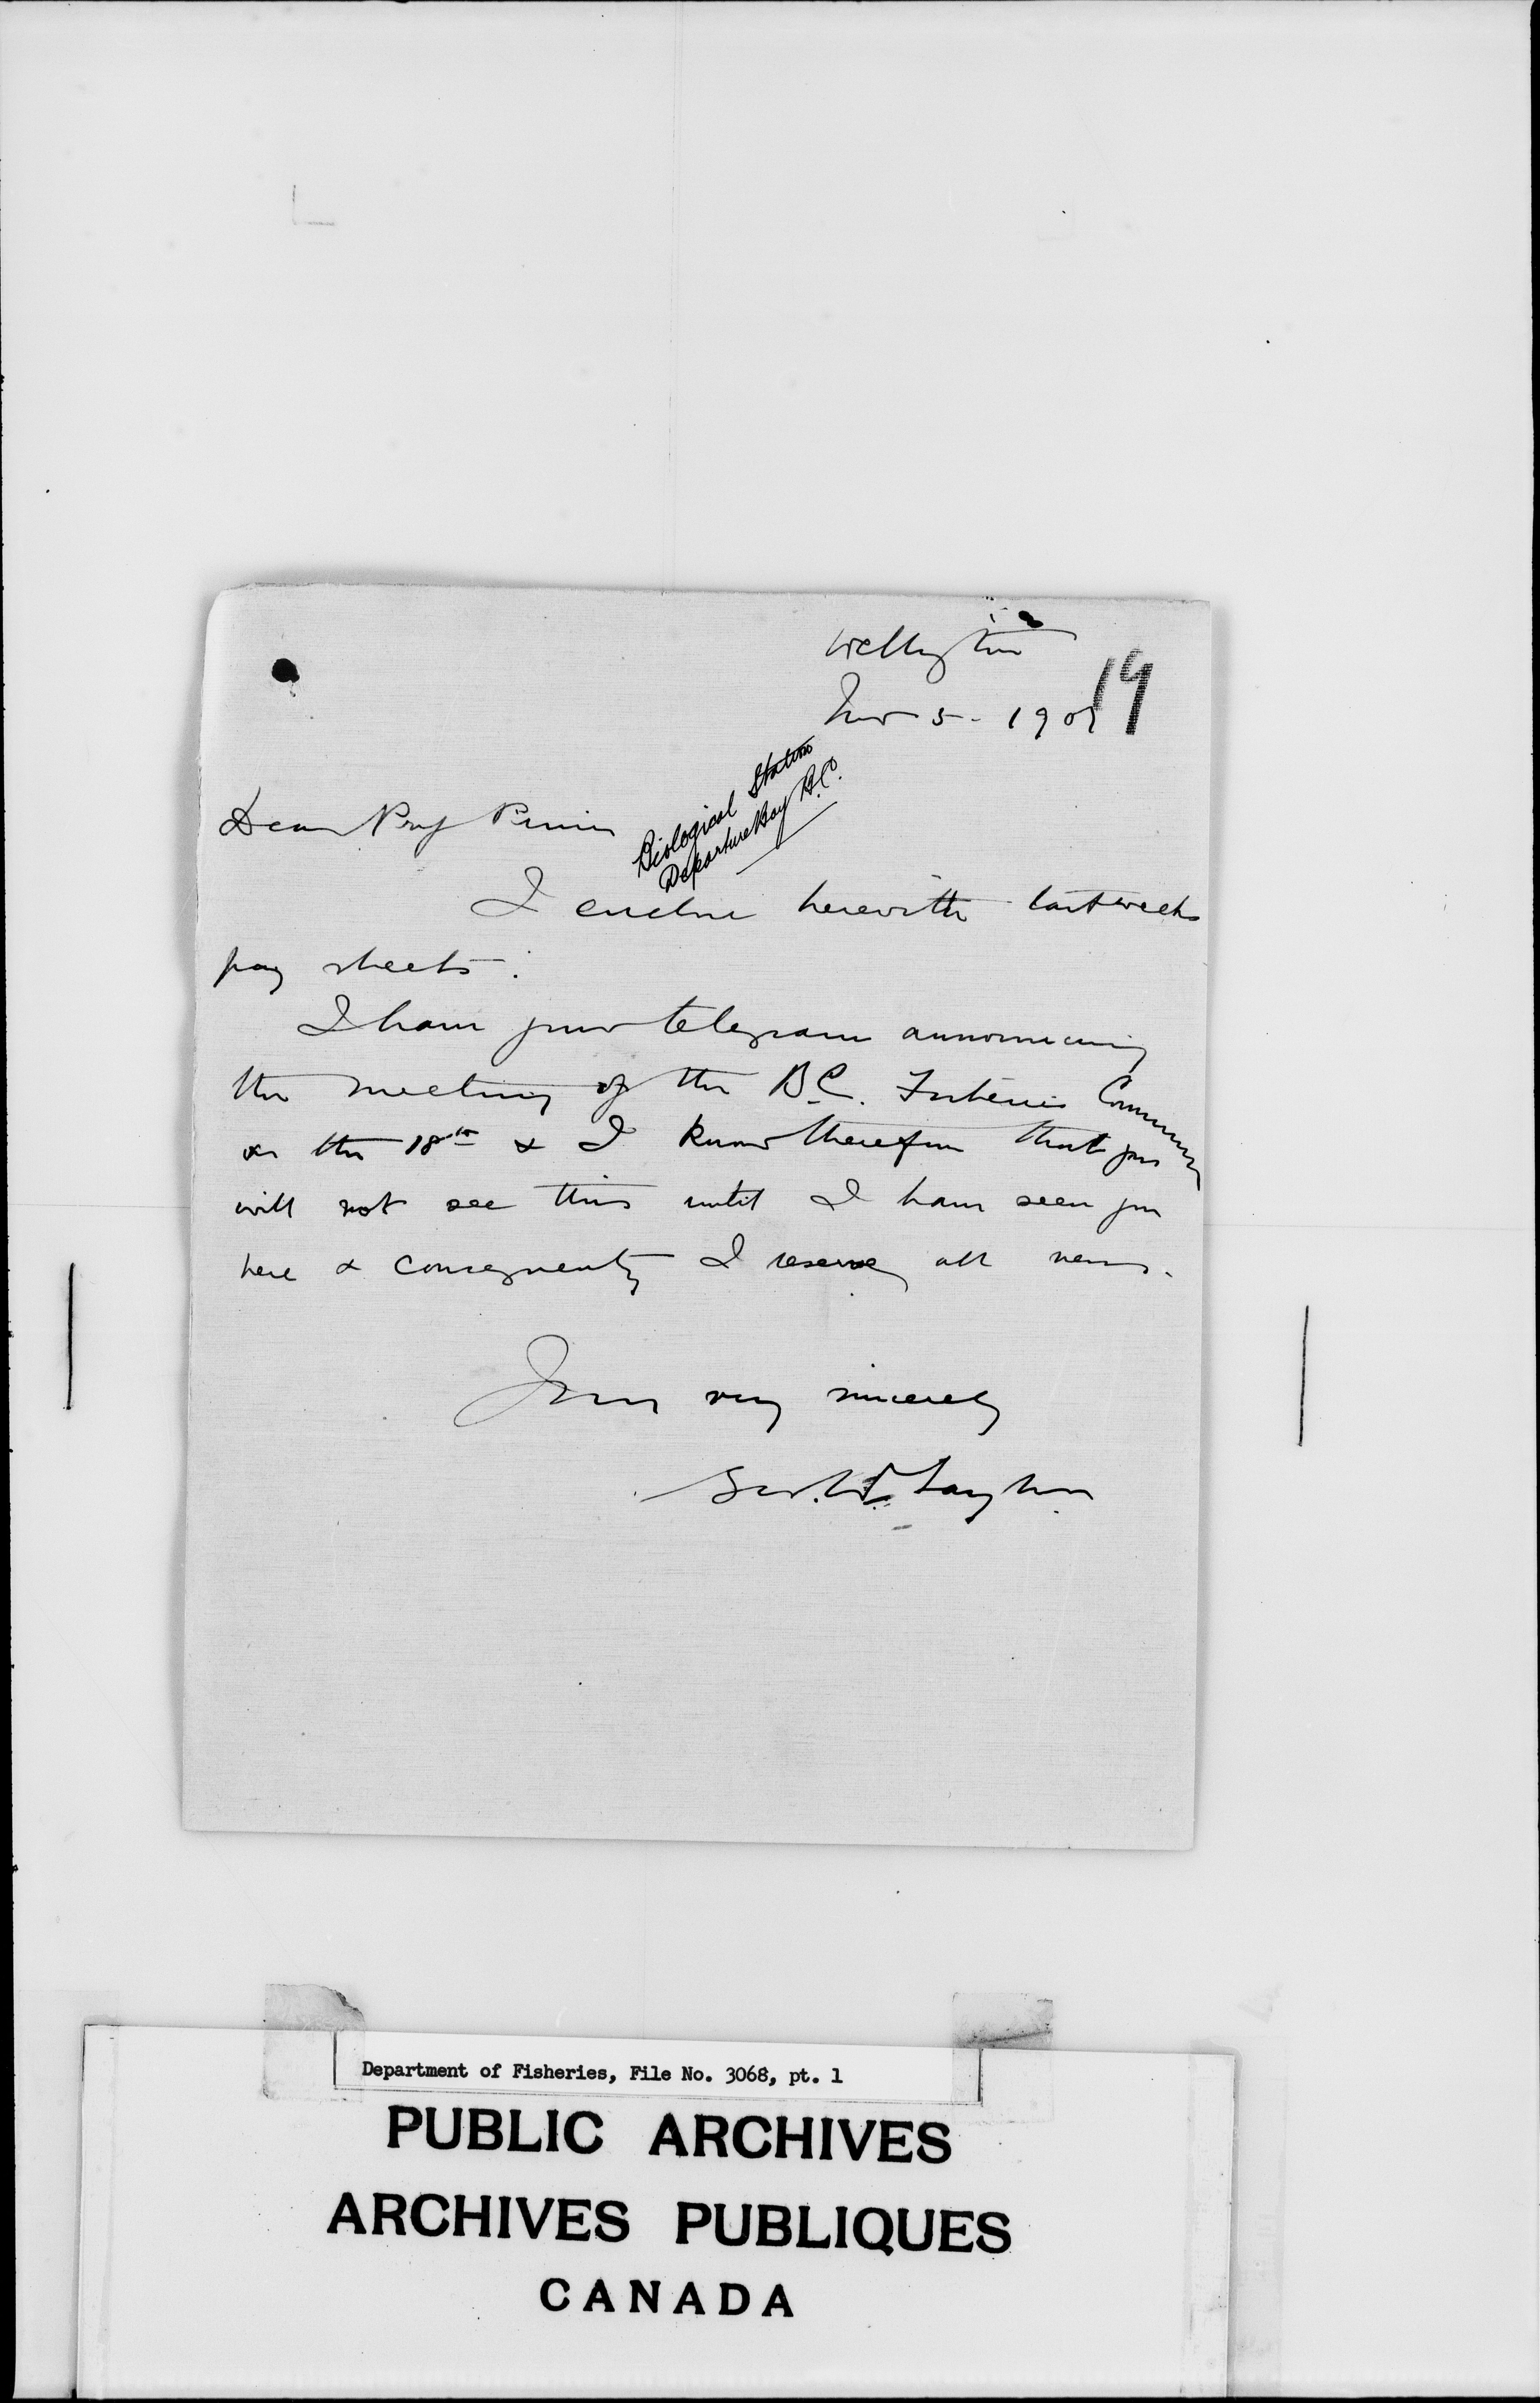 Wellington
19
Nov 5 - 1907
Biological Station
Departure Bay B.C.
Dear Prof Prince
I enclose herewith last weeks
pay sheets.
I have your telegram announcing
the meeting of the B.C. Fisheries Commission
on the 18th & I know therefore that you
will not see this until I have seen you
here & consequently I reserve all news.
Yours very sincerely
Geo. W. Taylor
Department of Fisheries, File No. 3068, pt. 1
PUBLIC ARCHIVES
ARCHIVES PUBLIQUES
CANADA